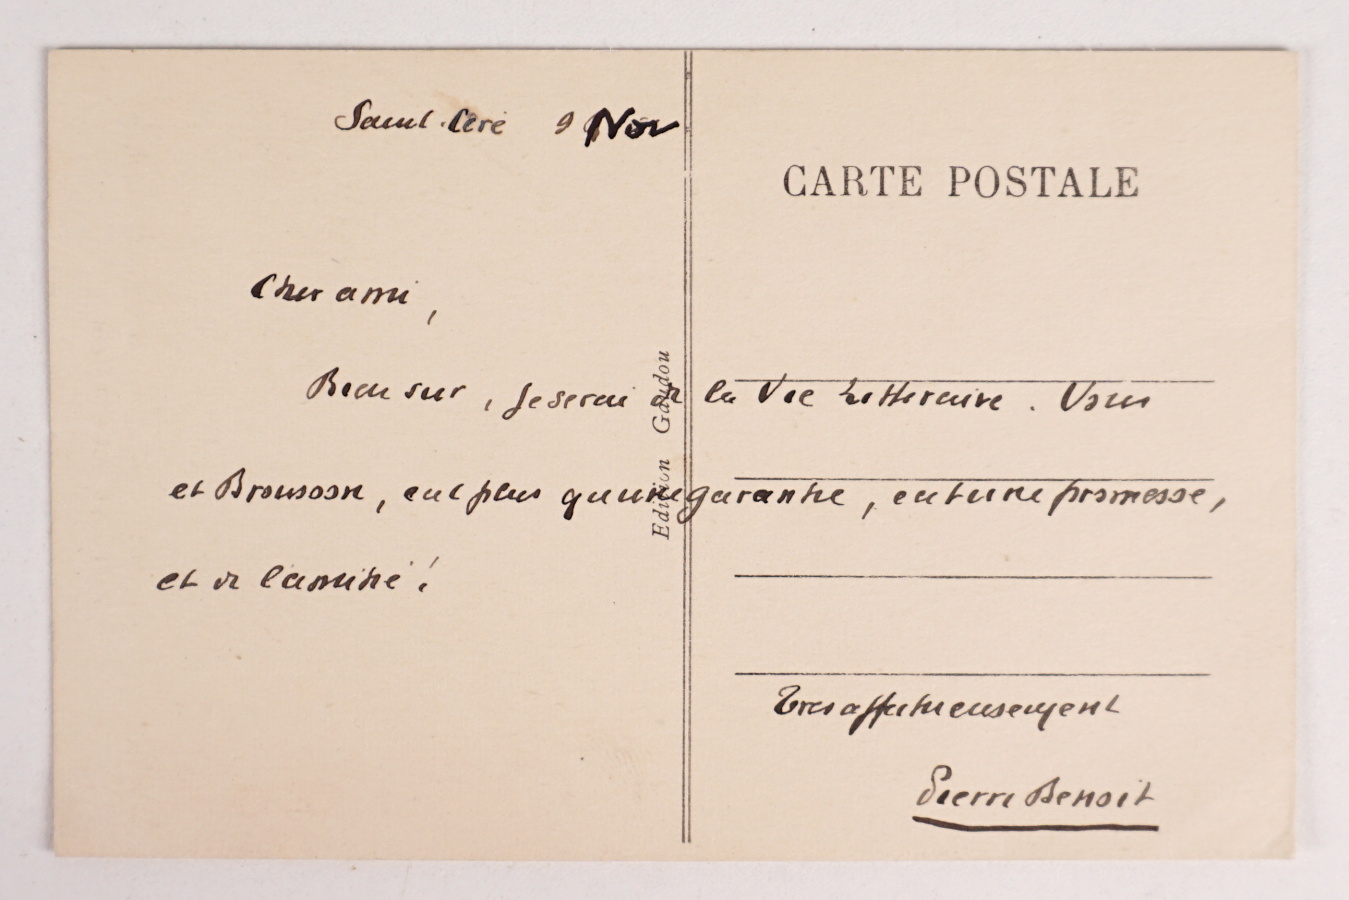 Saint-Céré 9 Nov
CARTE POSTALE
Cher ami,
Bien sur, je serai de la Vie Litteraire. Vous
et Brousson, c'est plus qu'une garantie, c'est une promesse,
et de l'amitié!
Edition Gaudou
Tres affectueusement
Pierre Benoit